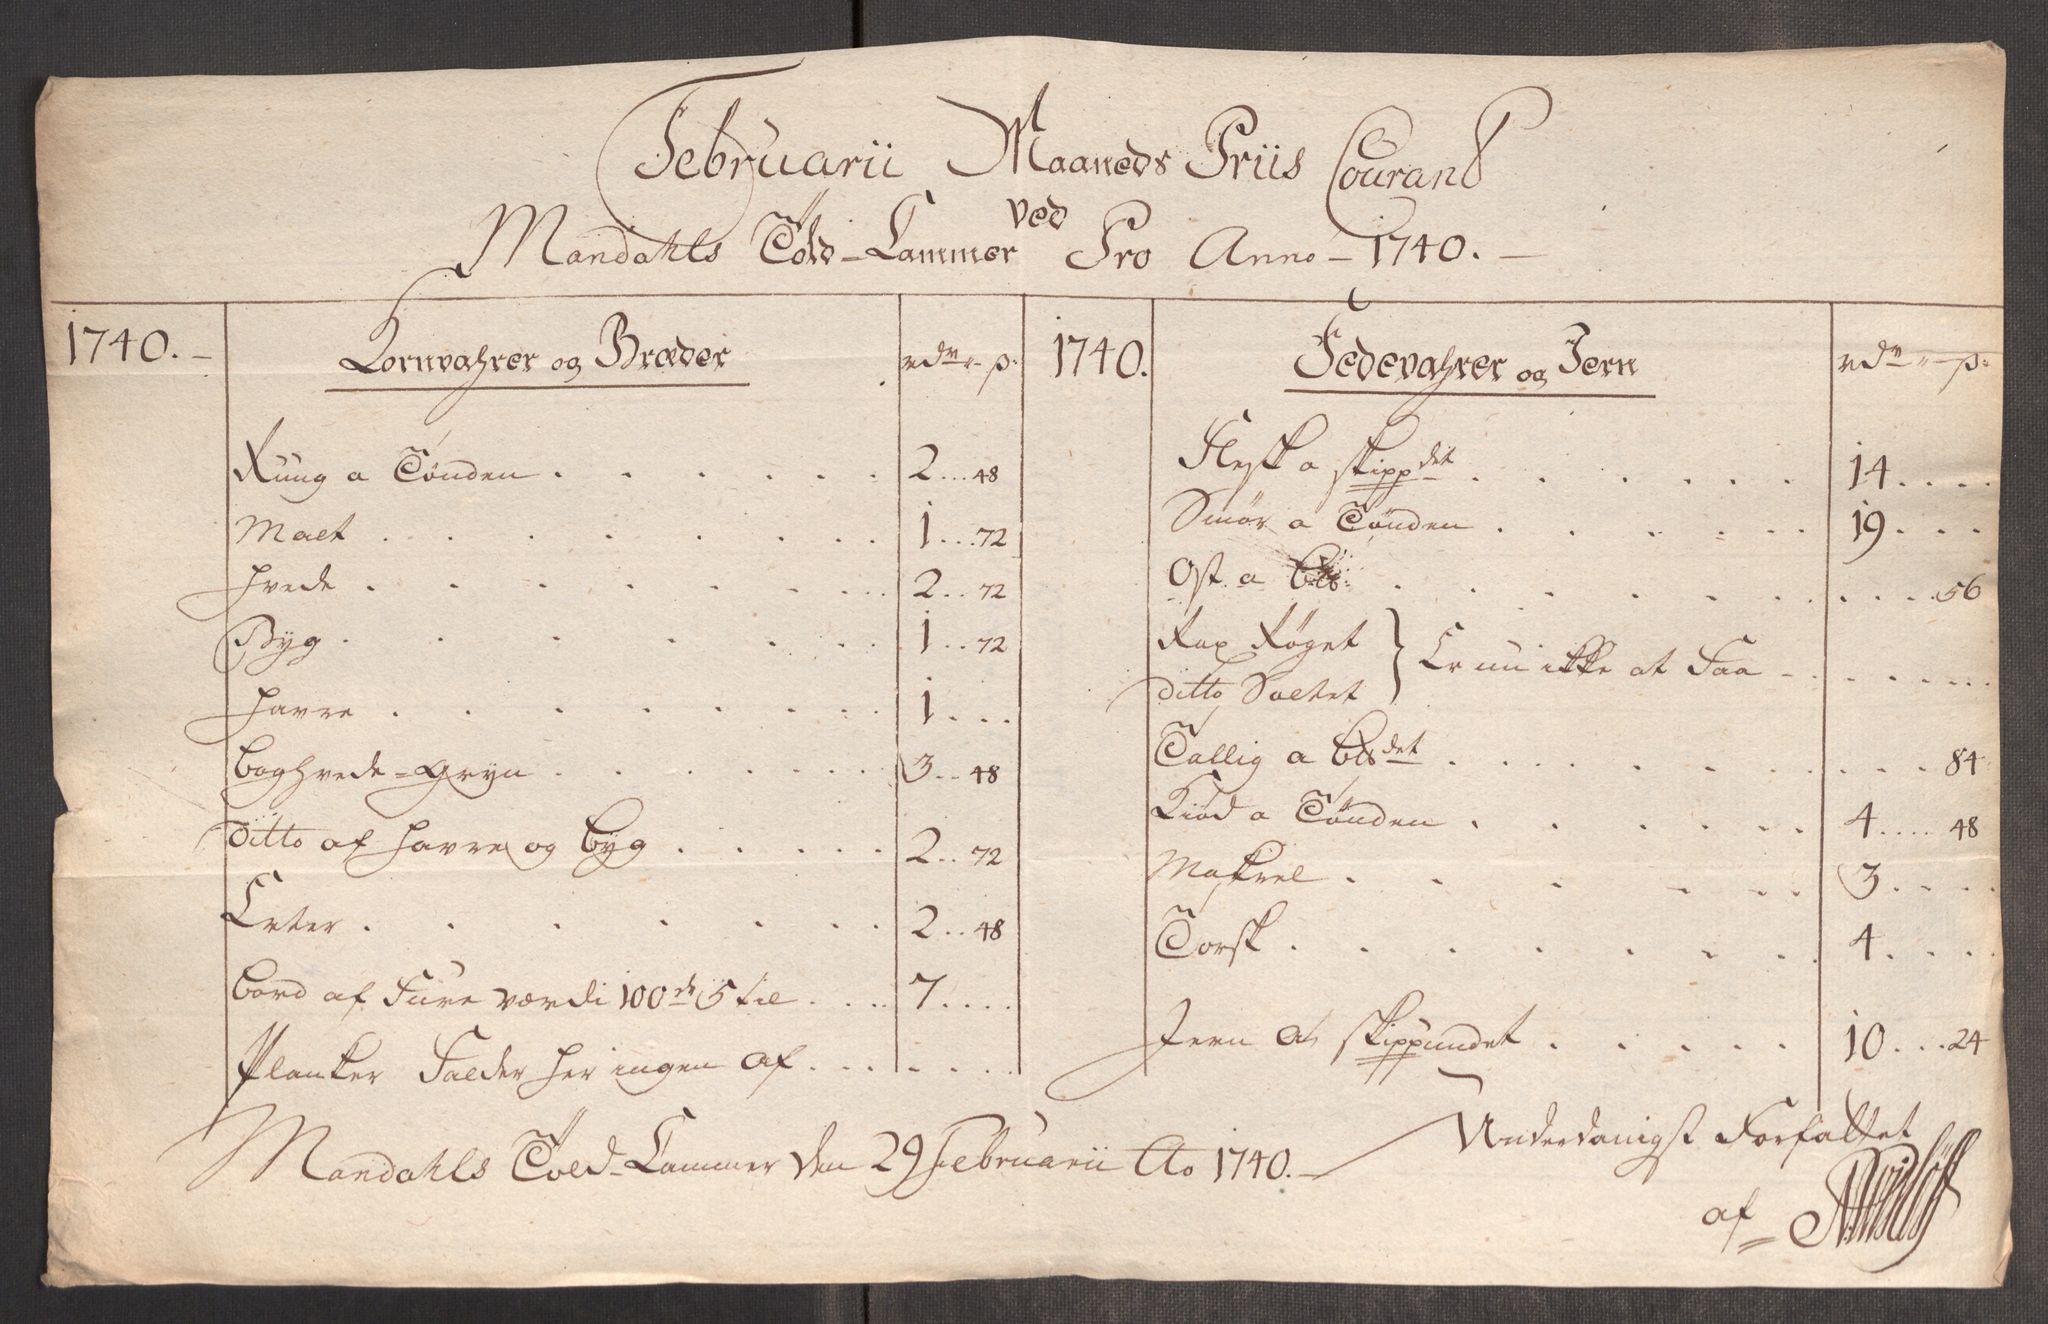 Februarii Maaneds Priis Courand
ved
Mandahls Told-Cammer Pro Anno 1740.
1740.
Kornvahrer og Bræder
rdr - ß:
Rung a Tønden . . . . . . 2 ... 48
Malt . . . . . . . 1 ... 72
Hvede . . . . . . . 2 .. 72
Byg . . . . . . . 1 .. 72
Havre . . . . . . . 1 ...
Boghvede-Gryn . . . . . . 3 .. 48
Ditto af Havre og Byg . . . . . 2 .. 72
Erter . . . . . . . 2 .. 48
Bord af Fure værdi 100de 5 til . . . 7 ....
Planker Falder her ingen af . . . . . . .
1740.
Fedevahrer og Jern
rdr - ß:
Flesk a skippdet . . . . . . 14 ....
Smør a Tønden . . . . . . 19 ...
Ost a . . . . . . . 56
Rax Røget
Ditto Saltet } Er nu ikke at Faa - . . . . . .
Tallig a Bpdet . . . . . . . 84
Kiød a Tønden . . . . . . 4 .... 48
Makrel . . . . . . 3 ....
Torsk . . . . . . . 4 ....
Jern a skippundet . . . . . 10 ... 24
Mandahls Told-Cammer den 29 Februarii Ao 1740. -
Underdanigst Forfattet
af